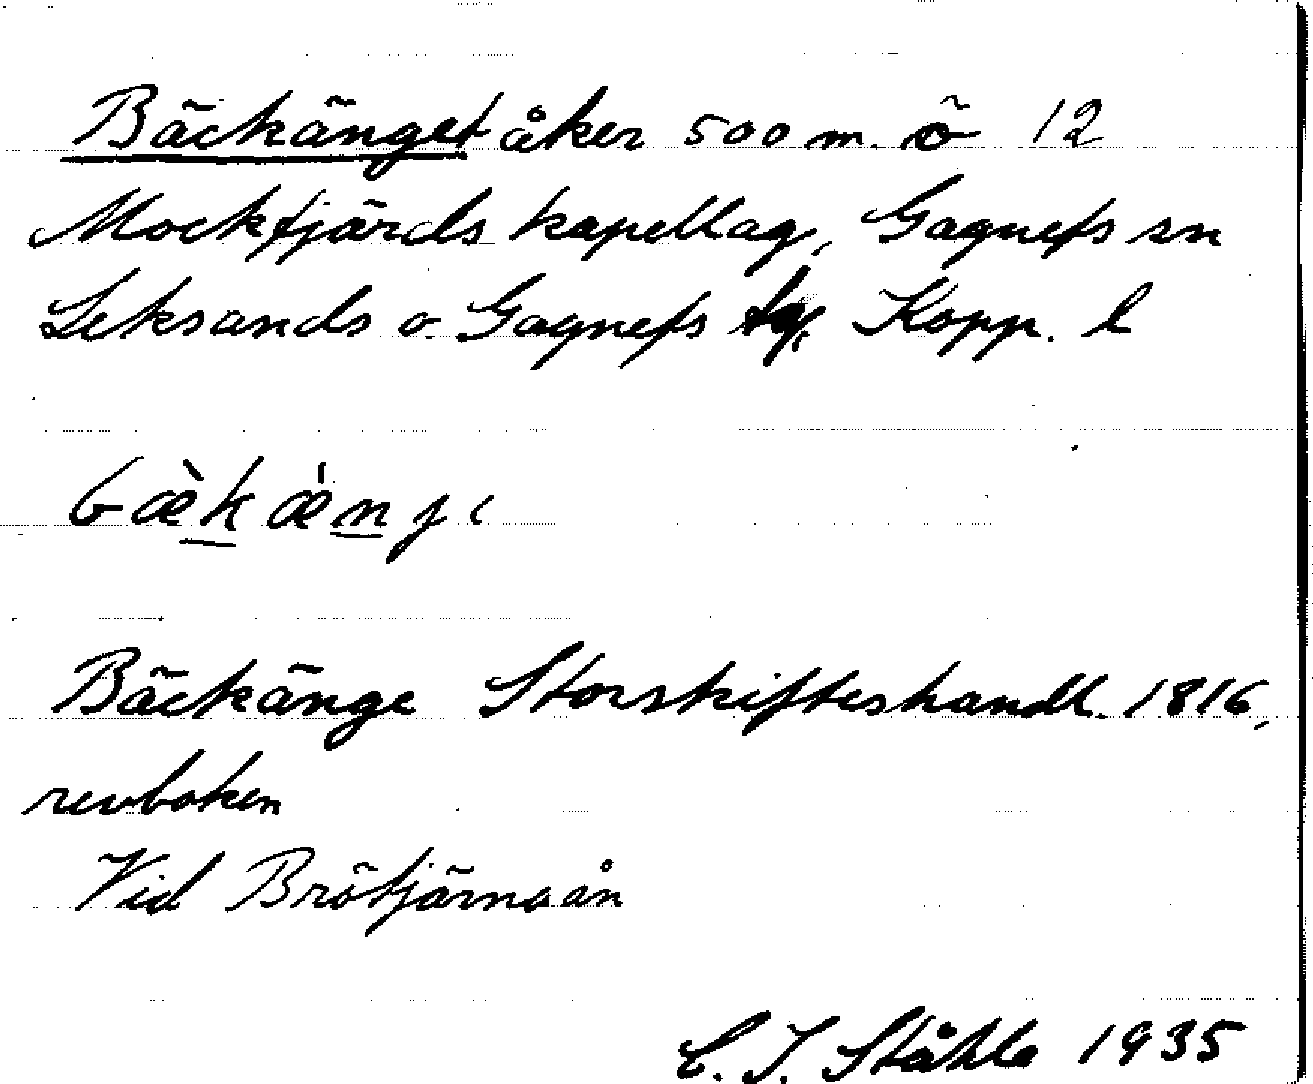 Bäckänget åker 500 m. ö 12
Mockfjärds kapellag, Gagnefs sn
Leksands o. Gagnefs tg. Kopp. l
bæ̀kæ̀njı
Bäckänge Storskifteshandl. 1816,
revboken
Vid Brötjärnaån
C. I. Ståhle 1935